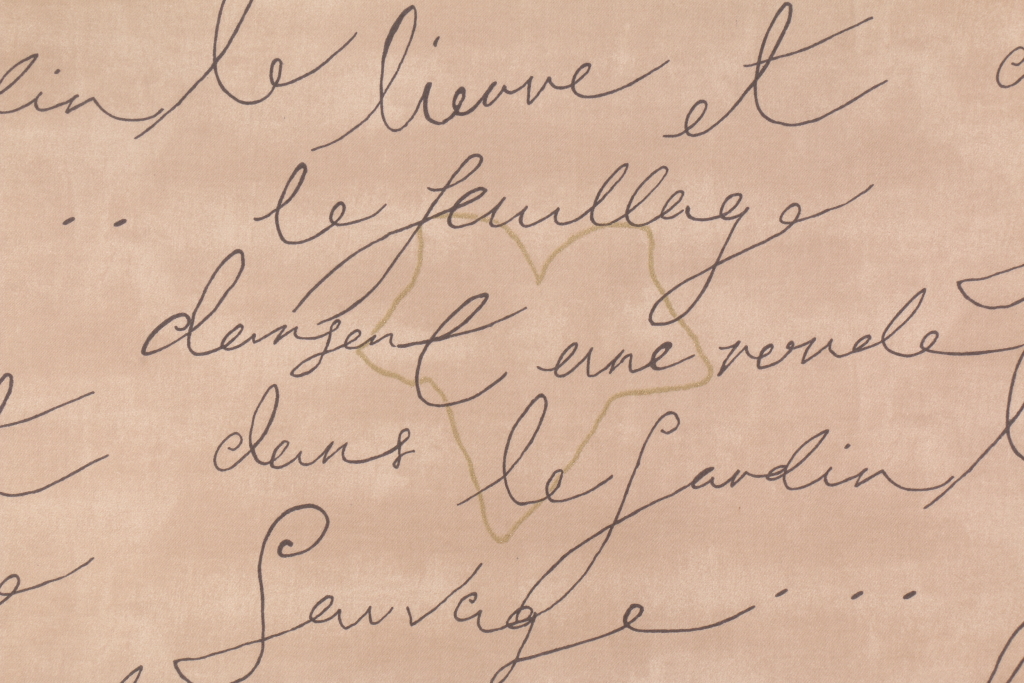 le lierre et
.. le feuillage
dansent une ronde
dans le Jardin
Sauvage ...